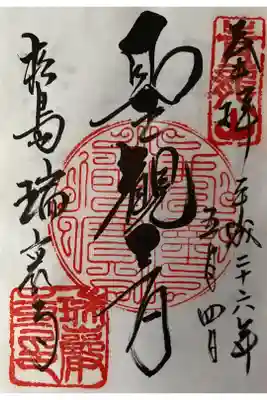 奉拝
平成二十六年
五月四日
聖観音
松島瑞巌寺